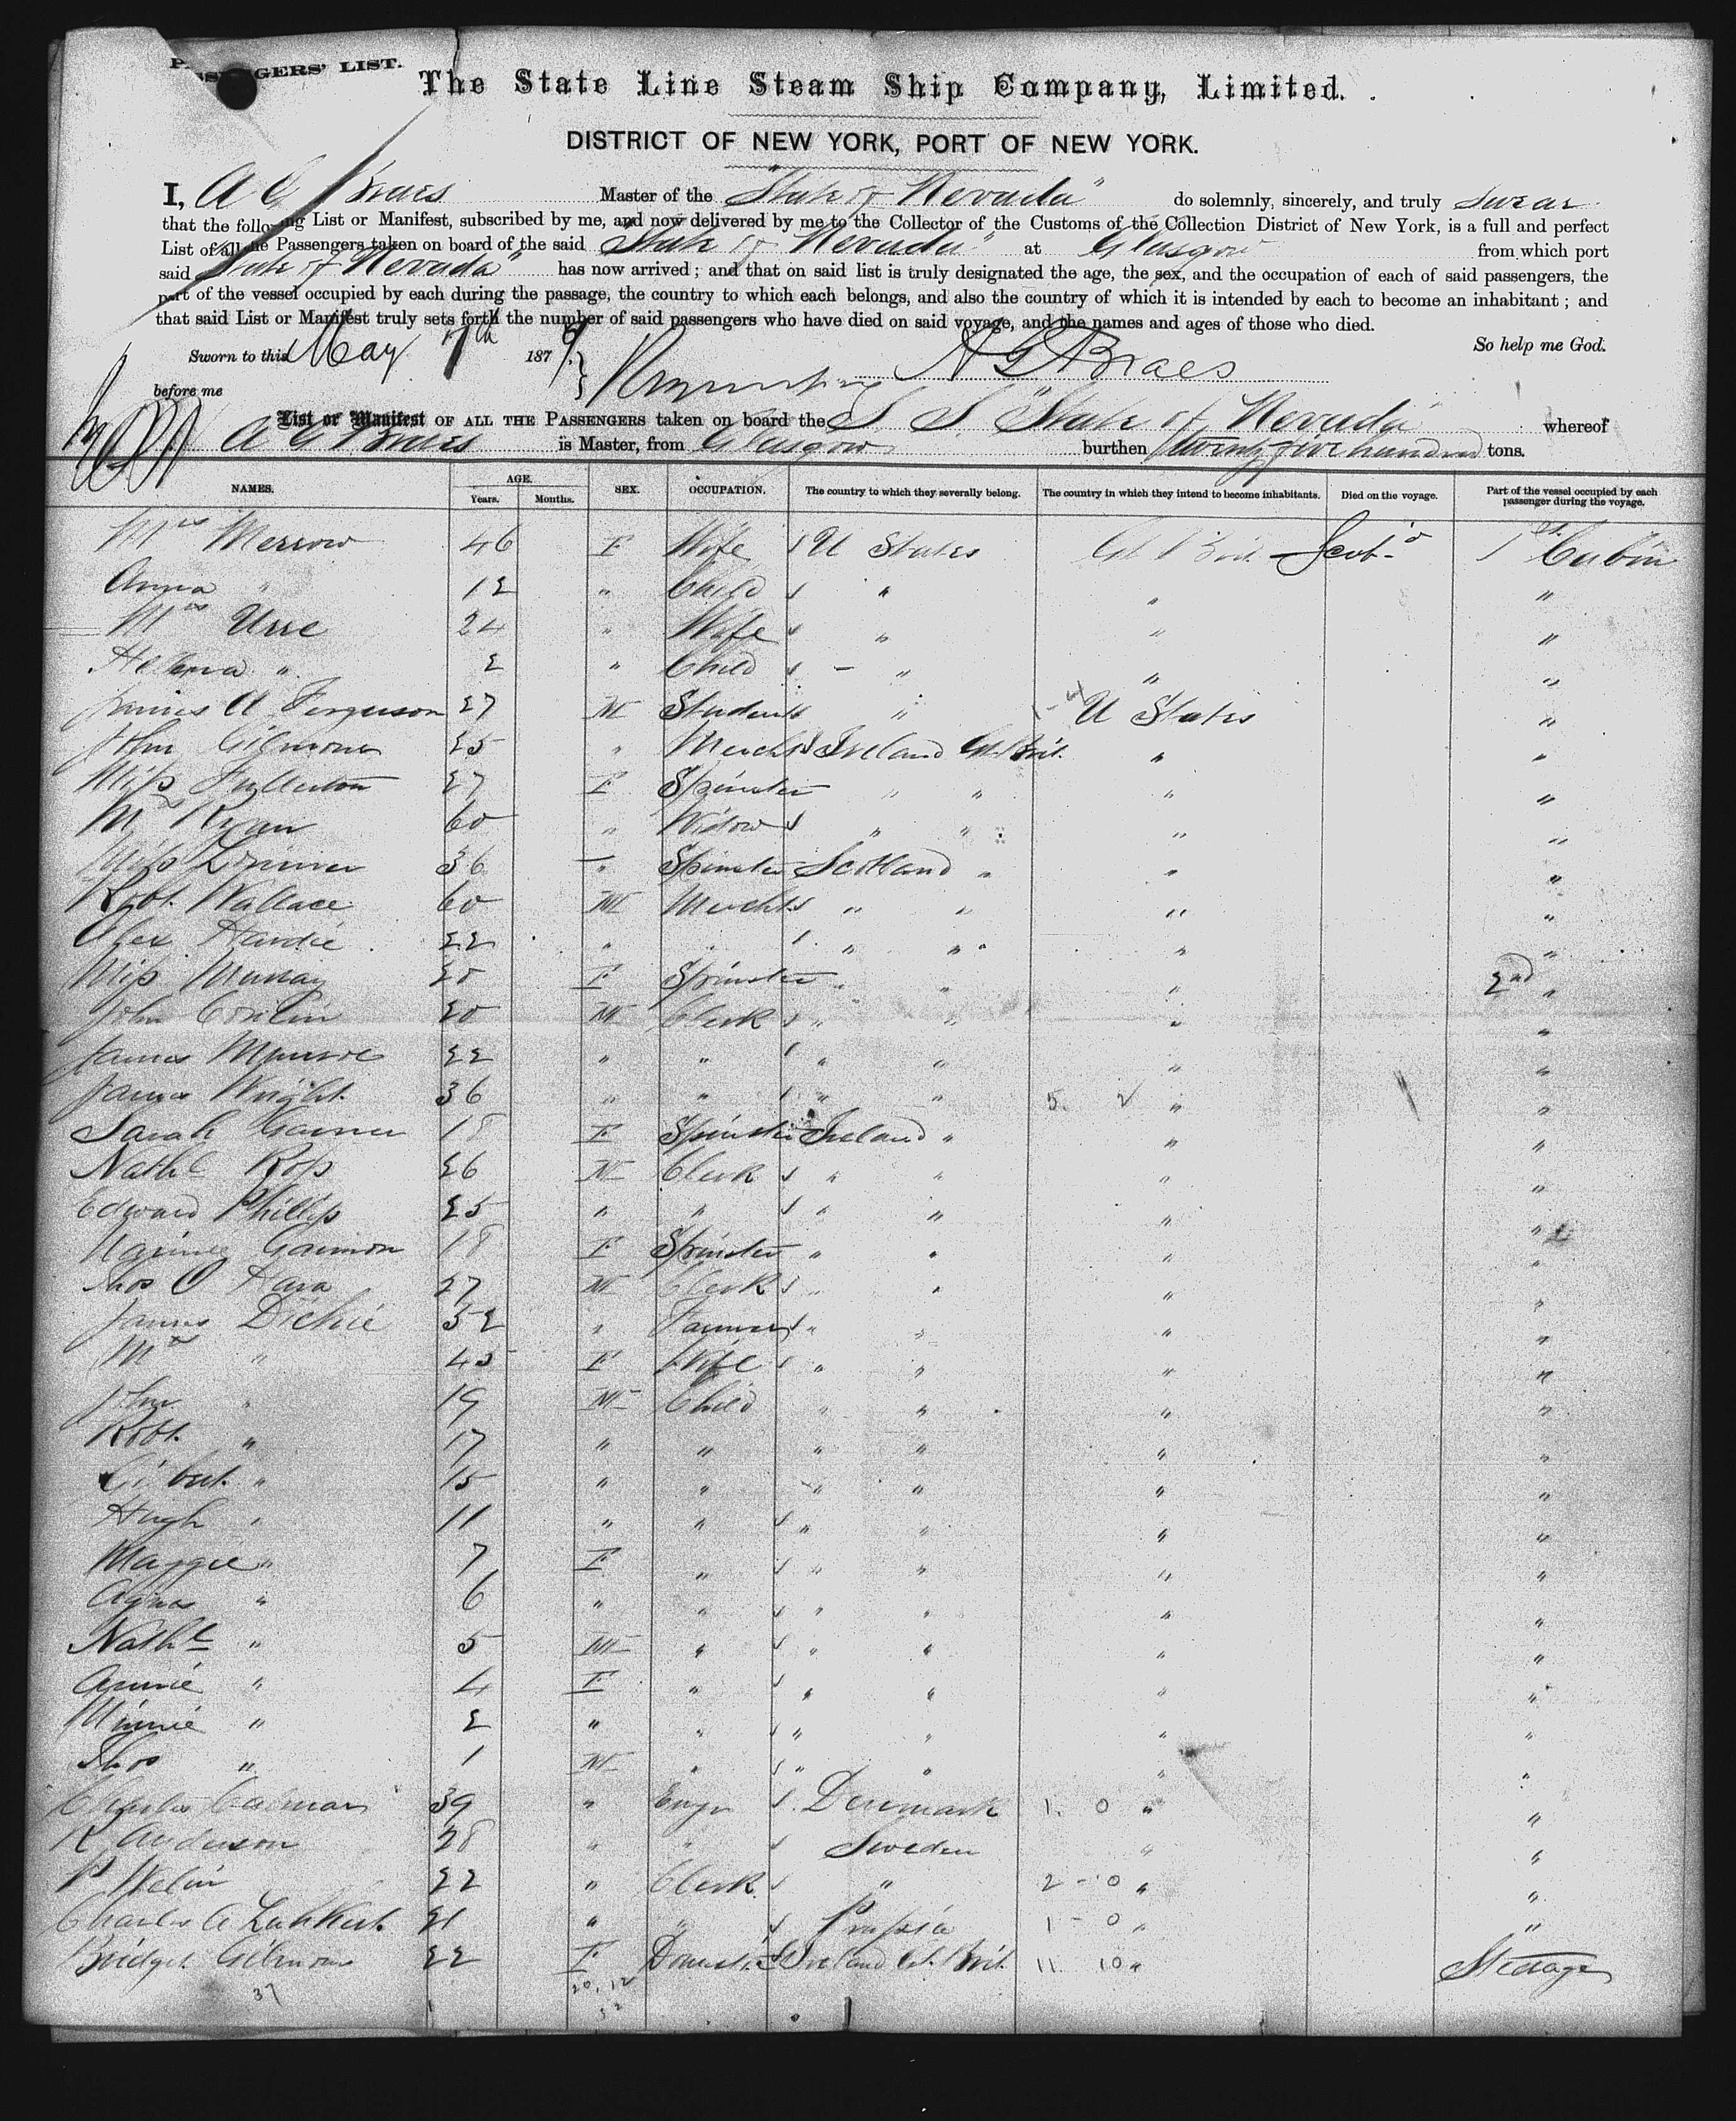 PASSENGERS' LIST.
The State Line Steam Ship Company, Limited.
DISTRICT OF NEW YORK, PORT OF NEW YORK.
I, A G Braes Master of the "State of Nevada" do solemnly, sincerely, and truly swear
that the following List or Manifest, subscribed by me, and now delivered by me to the Collector of the Customs of the Collection District of New York, is a full and perfect
List of all the Passengers taken on board of the said State of Nevada" at Glasgow from which port
said State of Nevada" has now arrived; and that on said list is truly designated the age, the sex, and the occupation of each of said passengers, the
part of the vessel occupied by each during the passage, the country to which each belongs, and also the country of which it is intended by each to become an inhabitant; and
that said List or Manifest truly sets forth the number of said passengers who have died on said voyage, and the names and ages of those who died.
So help me God.
Sworn to this May 7th 1879 A G Braes
before me
List or Manifest OF ALL THE PASSENGERS taken on board the S S. "State of Nevada" whereof
A G Braes is Master, from Glasgow burthen twenty five hundred tons.
NAMES. AGE. Years. Months. SEX. OCCUPATION. The country to which they severally belong. The country in which they intend to become inhabitants. Died on the voyage. Part of the vessel occupied by each passenger during the voyage.
Mrs Merrow 46 F Wife U States Gt Brit Scot'd 1st Cabin
Anna " 12 " Child " " "
Mrs Urie 24 " Wife " " "
Helena " 2 " Child " " "
James A Ferguson 27 M Student " U States "
John Gilmour 25 " Mercht Ireland Gt. Brit. " "
Miss Fullerton 27 F Spinster " " " "
Mrs Ryan 60 " Widow " " " "
Miss Lorimer 36 " Spinster Scotland " " "
Robt. Wallace 60 M Mercht " " " "
Alex Hardie 22 " " " " " "
Miss Murray 20 F Spinster " " " 2nd "
John Conlin 20 M Clerk " " " "
James Munroe 22 " " " " " "
James Wright 36 " " " " 5. " "
Sarah 18 F Spinster Ireland " " "
Nathl Ross 26 M Clerk " " " "
Edward Phillips 25 " " " " " "
Gannon 18 F Spinster " " " "
Thos O Hara 27 M Clerk " " " "
James Dickie 52 " Farmer " " " "
Mrs " 45 F Wife " " " "
John " 19 M Child " " " "
Robt. " 17 " " " " " "
Gilbert " 15 " " " " " "
Hugh " 11 " " " " " "
Maggie " 7 F " " " " "
Agnes " 6 " " " " " "
Nathl " 5 M " " " " "
Annie " 4 F " " " " "
Minnie " 2 " " " " " "
Thos " 1 M " " " " "
Charles 39 " Engr Denmark 1. 0 " "
R Anderson 28 " " Sweden " "
P Welin 22 " Clerk " 2 - 0 " "
Charles A 21 " " Prussia 1 - 0 " "
Bridget Gilmour 22 F Domestic Ireland Gt. Brit. 11. 10 " Steerage
37 20, 12